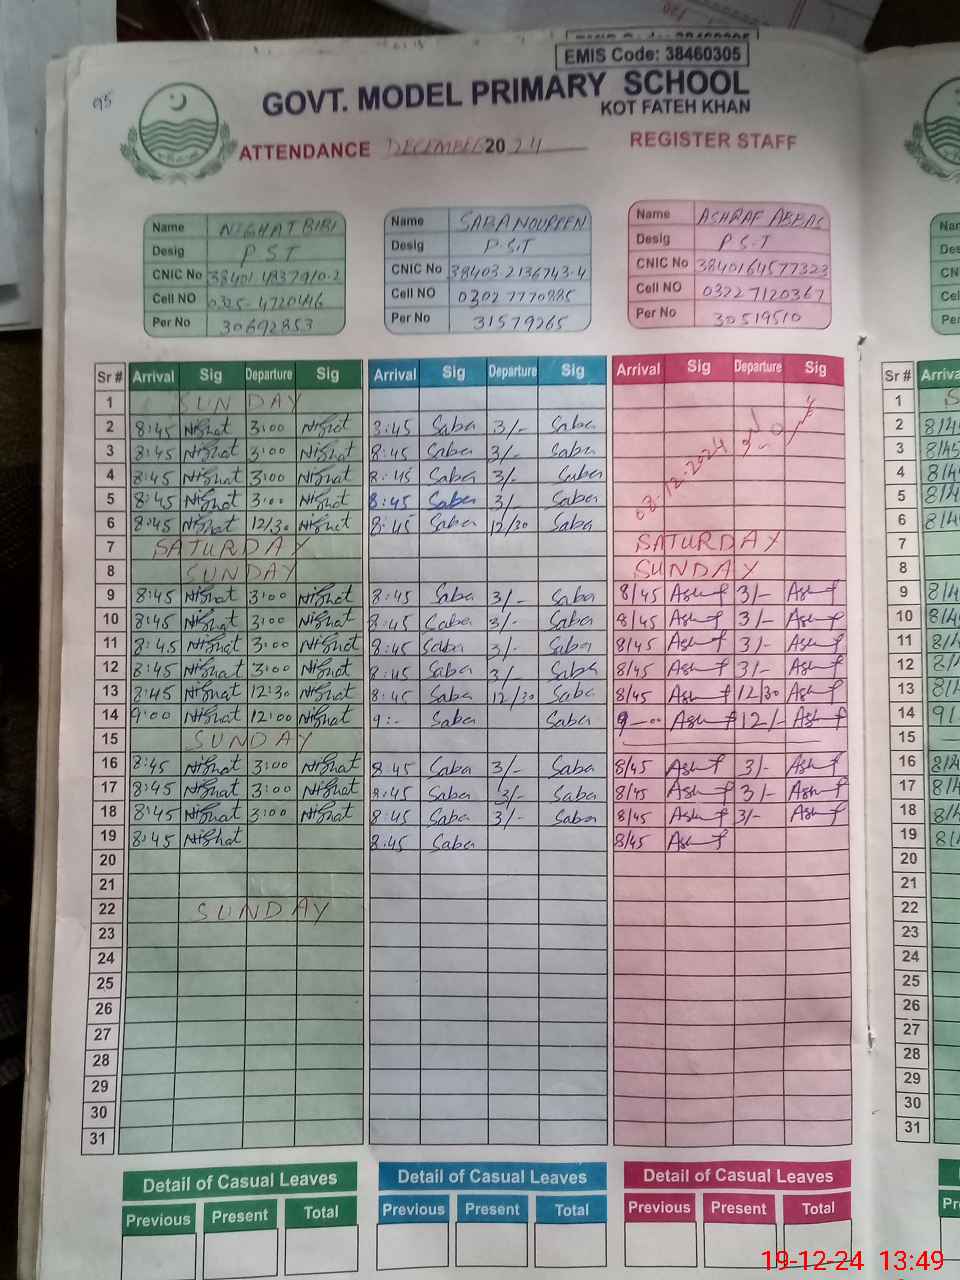 EMIS Code: 38460305
95
GOVT. MODEL PRIMARY SCHOOL
KOT FATEH KHAN
ATTENDANCE DECEMBER 2024 REGISTER STAFF
Name NIGHAT BIBI Name SABA NOUREEN Name ASHRAF ABBAS
Desig P S T Desig P.S.T Desig P.S.T
CNIC No 38401 4837910-2 CNIC No 38403 2136743-4 CNIC No 3840164577323
Cell NO 0325-4720416 Cell NO 0302 7770885 Cell NO 03227120367
Per No 30692853 Per No 31579265 Per No 30519510
Sr # Arrival Sig Departure Sig Arrival Sig Departure Sig Arrival Sig Departure Sig Sr # Arriva
1 SUNDAY 1
2 8:45 Nighat 3:00 Nighat 8:45 Saba 3/- Saba 2 8/45
3 8:45 Nighat 3:00 Nighat 8:45 Saba 3/- Saba 3 8/45
4 8:45 Nighat 3:00 Nighat 8:45 Saba 3/- Saba 03-12-2024 4 8/4
5 8:45 Nighat 3:00 Nighat 8:45 Saba 3/- Saba 5 8/4
6 8:45 Nighat 12/30 Nighat 8:45 Saba 12/30 Saba 6 8/4
7 SATURDAY SATURDAY 7
8 SUNDAY SUNDAY 8
9 8:45 Nighat 3:00 Nighat 8:45 Saba 3/- Saba 8/45 Ashraf 3/- Ashraf 9 8/4
10 8:45 Nighat 3:00 Nighat 8:45 Saba 3/- Saba 8/45 Ashraf 3/- Ashraf 10 8/4
11 8:45 Nighat 3:00 Nighat 8:45 Saba 3/- Saba 8/45 Ashraf 3/- Ashraf 11 8/4
12 8:45 Nighat 3:00 Nighat 8:45 Saba 3/- Saba 8/45 Ashraf 3/- Ashraf 12 8/4
13 8:45 Nighat 12:30 Nighat 8:45 Saba 12/30 Saba 8/45 Ashraf 12/30 Ashraf 13 8/4
14 9:00 Nighat 12:00 Nighat 9:- Saba Saba 9-00 Ashraf 12/- Ashraf 14 91
15 SUNDAY 15
16 8:45 Nighat 3:00 Nighat 8:45 Saba 3/- Saba 8/45 Ashraf 3/- Ashraf 16 8/4
17 8:45 Nighat 3:00 Nighat 8:45 Saba 3/- Saba 8/45 Ashraf 3/- Ashraf 17 8/4
18 8:45 Nighat 3:00 Nighat 8:45 Saba 3/- Saba 8/45 Ashraf 3/- Ashraf 18 8/4
19 8:45 Nighat 8:45 Saba 8/45 Ashraf 19 8/4
20 20
21 21
22 SUNDAY 22
23 23
24 24
25 25
26 26
27 27
28 28
29 29
30 30
31 31
Detail of Casual Leaves Detail of Casual Leaves Detail of Casual Leaves
Previous Present Total Previous Present Total Previous Present Total
19-12-24 13:49